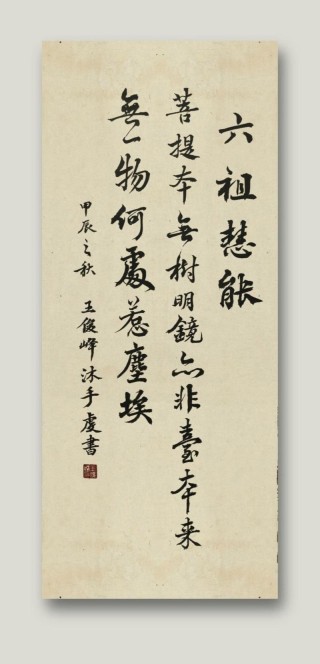 六祖慧能
菩提本無樹明鏡亦非臺本来
無一物何處惹塵埃
甲辰之秋 王俊峰沐手虔書